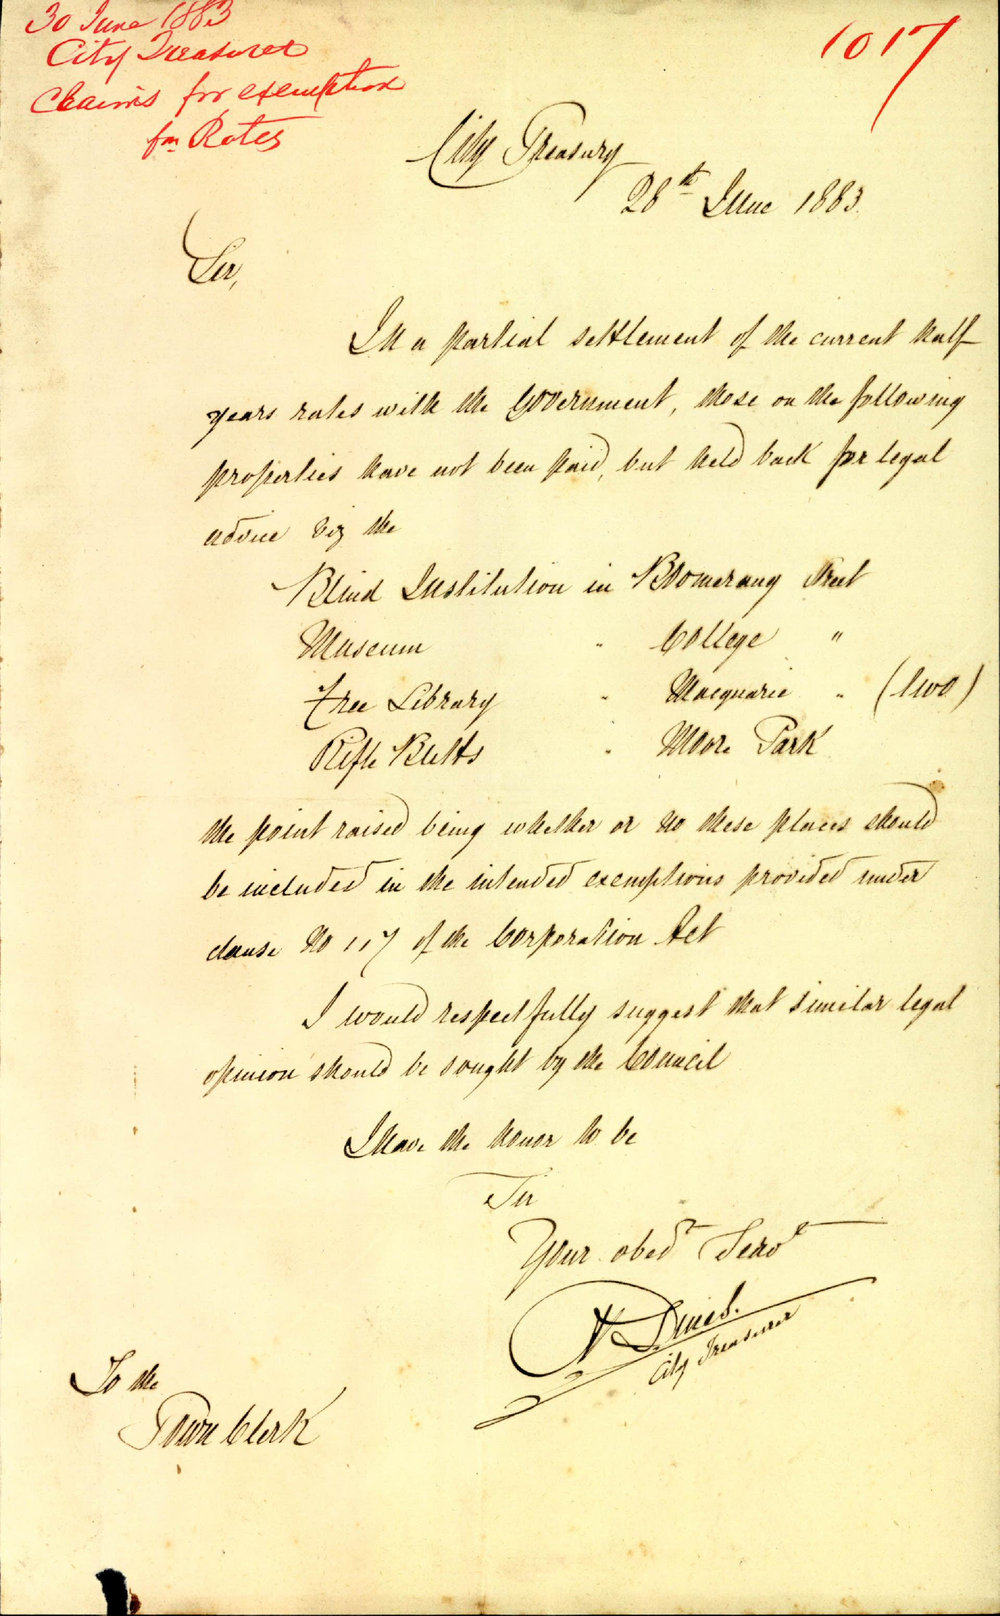 30 June 1883
City Treasurer
Claims for exemption
fm Rates
1017
City Treasury
28th June 1883.
Sir,
In a partial settlement of the current half
years rates with the Government, those on the following
properties have not been paid, but held back for legal
advice viz the
Blind Institution in Boomerang Street
Museum " College "
Free Library " Macquarie " (two)
Rifle Butts " Moore Park
the point raised being whether or no these places should
be included in the intended exemptions provided under
clause No 117 of the Corporation Act
I would respectfully suggest that similar legal
opinion should be sought by the Council
I have the honor to be
Sir
Your obedt Servt
City Treasurer
To the
Town Clerk